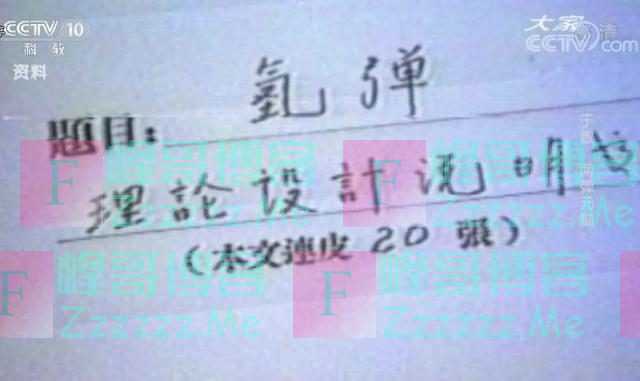 CCTV 10
科教
资料
大家
CCTV.com
氢弹
題目:
理論设計说明书
(本文連皮 20 張)
F 峰哥博客
Zzzzzz.Me
F 峰哥博客
Zzzzzz.Me
F 峰哥博客
Zzzzzz.Me
F 峰哥博客
Zzzzzz.Me